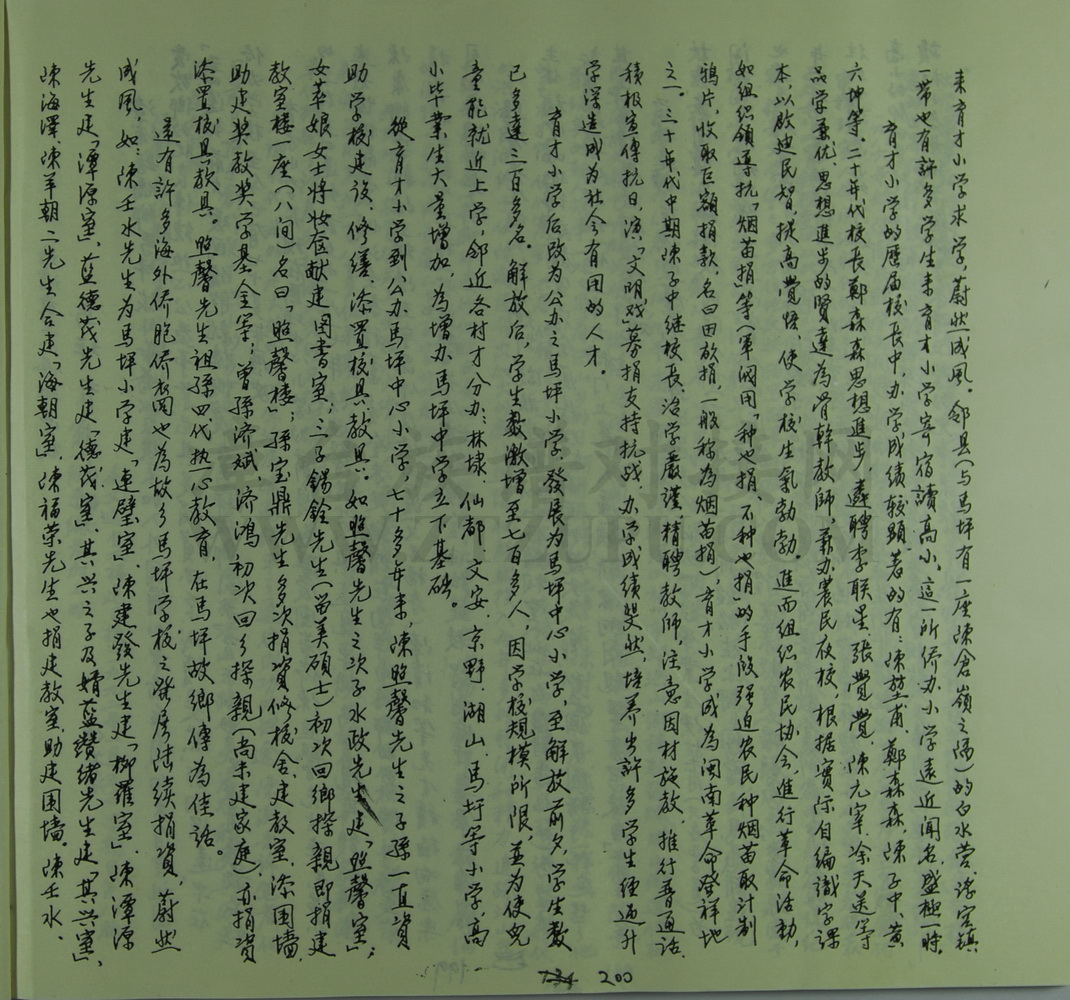 来育才小学求学,蔚然成风。邻县(与马坪有一座陈仓嶺之隔)的白水营、深宫镇
一带也有許多学生来育才小学寄宿讀高小。這一所侨办小学遠近闻名,盛極一時。
育才小学的歷届校长中,办学成绩较顕著的有:陳堃甫、鄭森森、陳子中、黄
六坤等。二十年代校长鄭森森思想進步,遴聘李联星、張覺覺、陳元宰、涂天送等
品学兼优、思想進步的賢達為骨幹教師,兼办農民夜校,根据實际自编識字課
本,以啟迪民智,提高覺悟,使学校生氣勃勃。進而组织农民协会,進行革命活動,
如组织领導抗「烟苗捐」等(軍阀用「种也捐、不种也捐」的手段强迫农民种烟苗取汁制
鸦片,收取巨額捐款,名曰田畝捐,一般称為烟苗捐),育才小学成為闽南革命發祥地
之一。三十年代中期陳子中继校長,治学嚴谨,精聘教师,注意因材施教,推行普通话,
積极宣傳抗日,演「文明戏」募捐支持抗战,办学成績斐然,培养出許多学生经過升
学深造成为社会有用的人才。
育才小学后改为公办之馬坪小学,發展为馬坪中心小学,至解放前夕,学生数
已多達三百多名。解放后,学生数激增至七百多人,因学校規模所限,并为使兒
童能就近上学,邻近各村才分办:林埭、仙都、文安、京野、湖山、馬圩等小学,高
小毕業生大量增加,為增办馬坪中学立下基础。
從育才小学到公办馬坪中心小学,七十多年来,陳照馨先生之子孫一直資
助学校建设、修缮、添置校具、教具。如照馨先生之次子水政先生建「照馨室」;
女萃娘女士將妝奩献建图書室;三子錫銓先生(留美硕士)初次回鄉探親即捐建
教室楼一座(八间)名曰「照馨樓」;孫宝鼎先生多次捐資修校舍、建教室、添围墙、
助建奖教奖学基金等;曾孫济斌、济鴻初次回乡探親(尚未建家庭)亦捐資
添置校具、教具。照馨先生祖孫四代热心教育,在馬坪故鄉傳為佳話。
還有許多海外侨胞侨眷也為故乡馬坪学校之發展陸续捐資,蔚然
成風,如:陳壬水先生为馬坪小学建「連璧室」、陳建發先生建「柳羅室」、陳潭源
先生建「潭源室」、蓝德茂先生建「德茂室」、其兴之子及婿蓝讚绪先生建「其兴室」、
陳海澤、陳羊朝二先生合建「海朝室」、陳福荣先生也捐建教室、助建围墙。陳壬水、
200